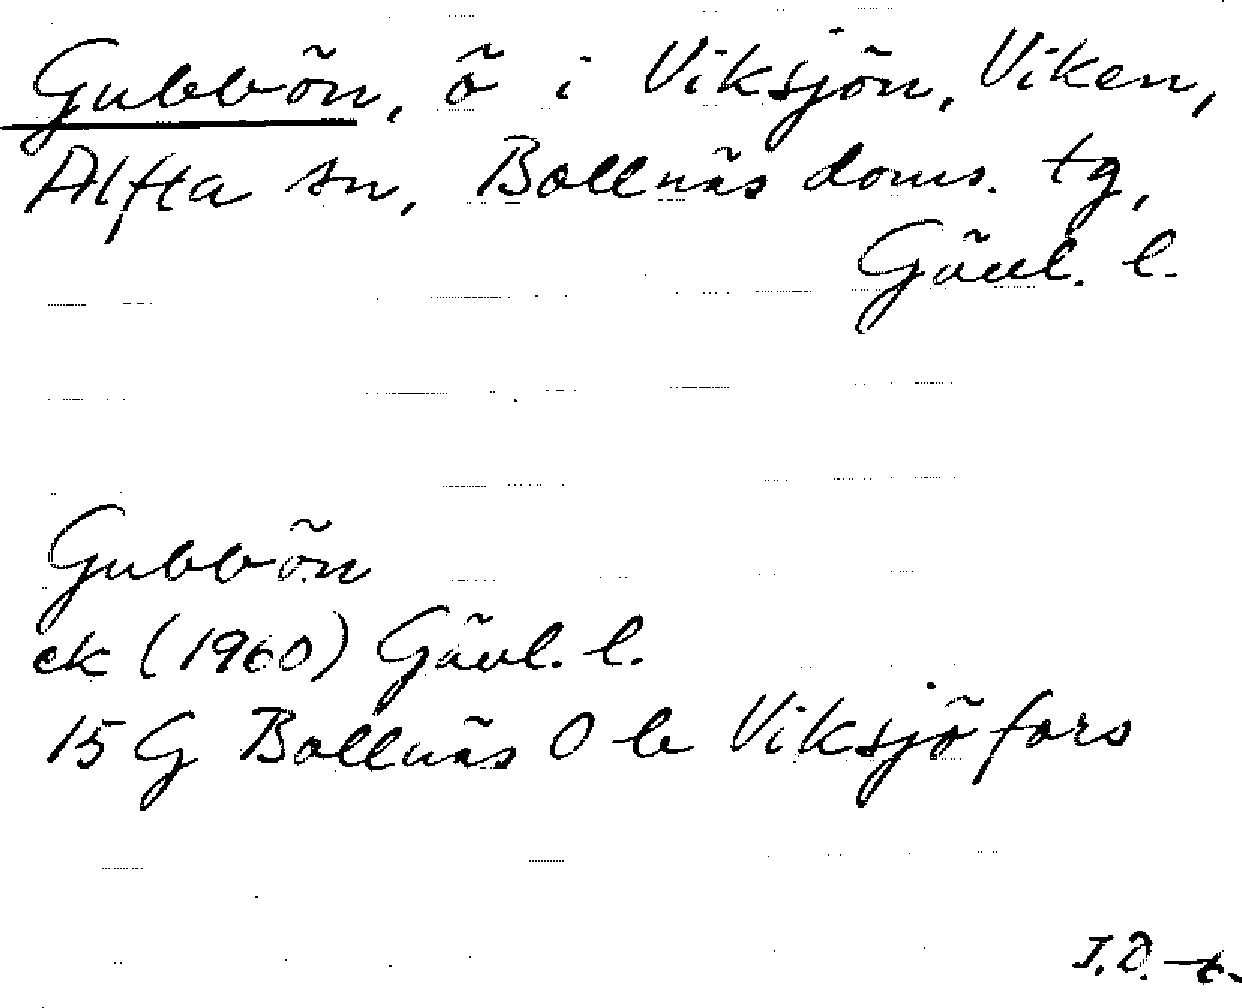 Gubbön, ö i Viksjön, Viken,
Alfta sn, Bollnäs doms. tg,
Gävl. l.
Gubbön
ek (1960) Gävl. l.
15 G Bollnäs 0 b Viksjöfors